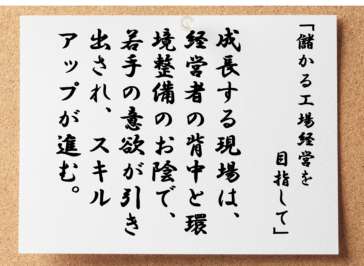 「儲かる工場経営を
目指して」
成長する現場は、
経営者の背中と環
境整備のお陰で、
若手の意欲が引き
出され、スキル
アップが進む。